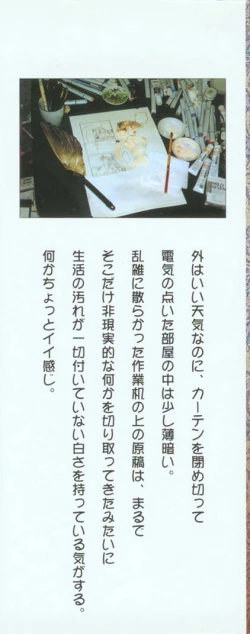 外はいい天気なのに、カーテンを閉め切って
電気の点いた部屋の中は少し薄暗い。
乱雑に散らかった作業机の上の原稿は、まるで
そこだけ非現実的な何かを切り取ってきたみたいに
生活の汚れが一切付いていない白さを持っている気がする。
何かちょっとイイ感じ。